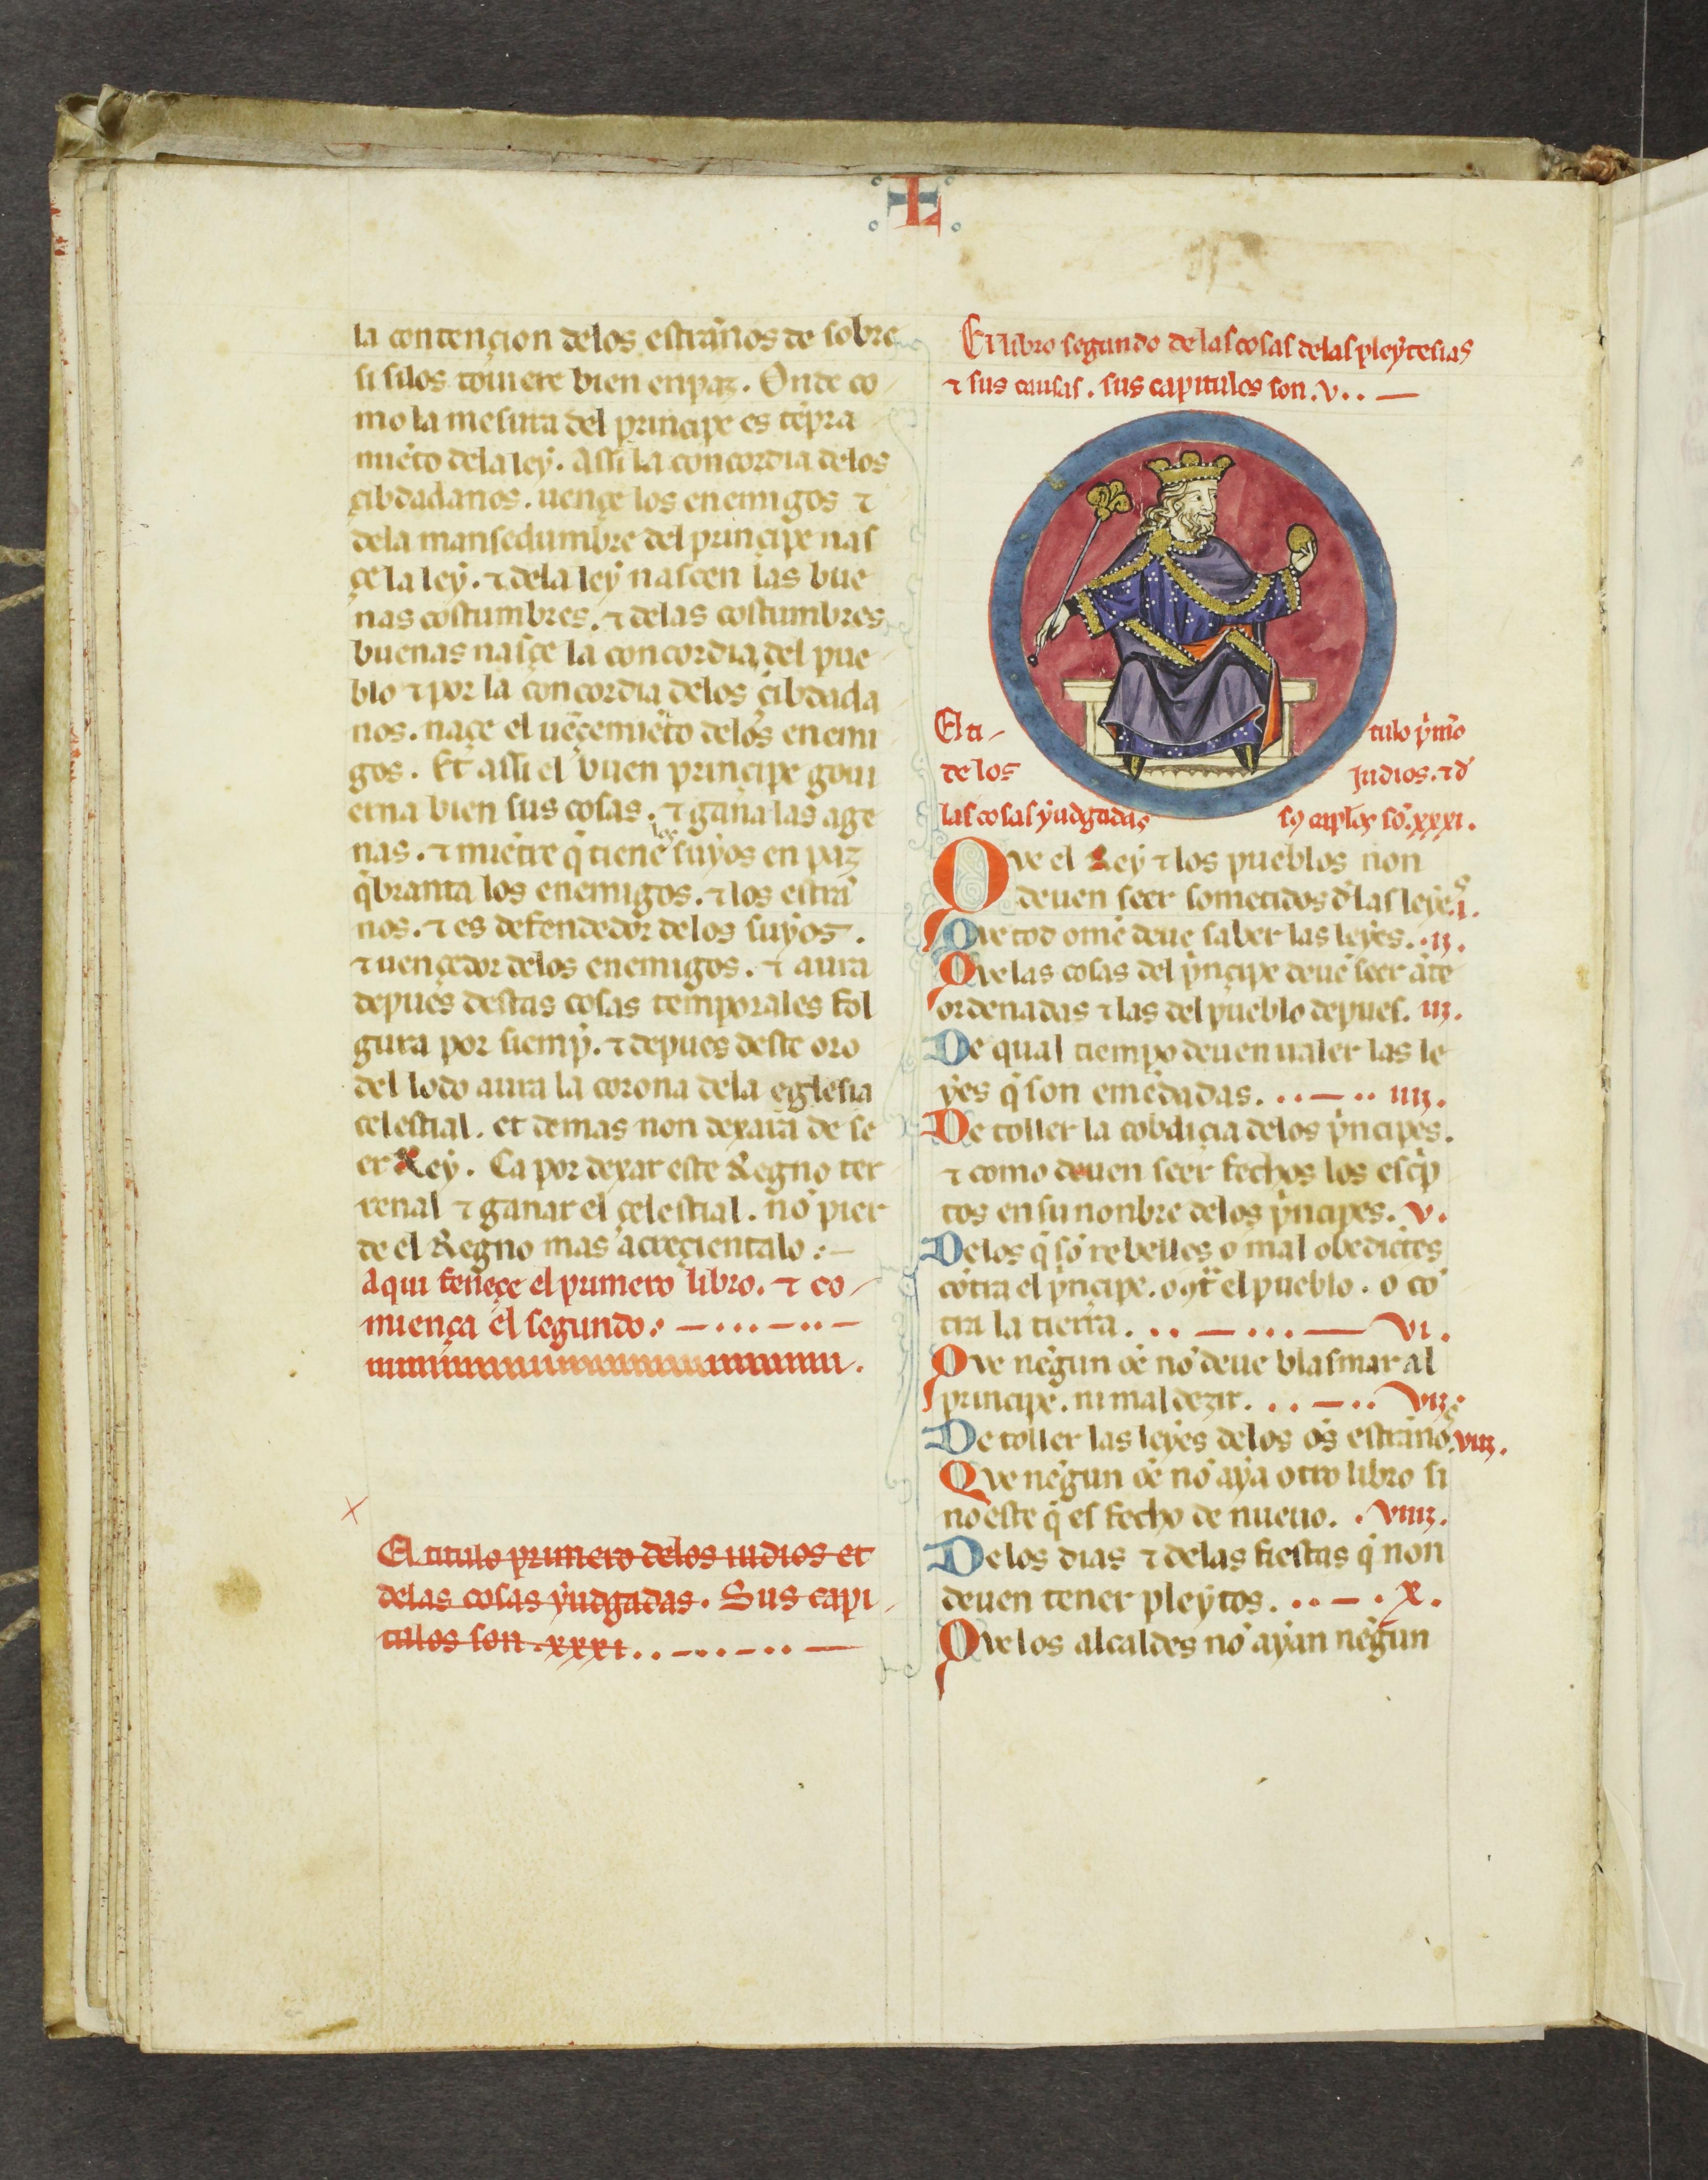 L
la contençion delos estrãnos de sobre
si silos touiere bien en paz. Onde co
mo la mesura del principe es tẽpra
miẽto dela ley. assi la concordia delos
çibdadanos. uençe los enemigos ⁊
dela mansedumbre del prinçipe nas
çe la ley. ⁊ dela ley nascen las bue
nas costumbres. ⁊ delas costumbres
buenas nasçe la concordia del pue
blo ⁊ por la concordia delos çibdada
nos. naçe el uẽçemiẽto delos enemi
gos. Et assi el buen principe goui
erna bien sus cosas. ⁊ gana las age
nas. ⁊ miẽtre q̃ tiene los suyos en paz
q̃branta los enemigos. ⁊ los estrã
nos. ⁊ es defendedor delos suyos.
⁊ uençedor delos enemigos. ⁊ aura
depues destas cosas temporales fol
gura por siemp̃. ⁊ depues deste oro
del lodo aura la corona dela eglesia
celestial. et demas non dexara de se
er Rey. Ca por dexar este Regno ter
renal ⁊ ganar el çelestial. nõ pier
de el Regno mas acreçientalo :-
Aqui feneçe el primero libro. ⁊ co
miença el segundo : — ... — .. —
El titulo primero delos iudios et
delas cosas yudgadas. Sus capi
tulos son .xxxi. . . — . . — . . —
El libro segundo de las cosas delas pleytesias
⁊ sus causas. sus capitulos son .v. . —
El ti-
tulo p̃mõ
de los
Judios. ⁊ d̃
las cosas yudgadas
sꝯ capl̃os sõ .xxxi.
Que el Rey ⁊ los pueblos non
deuen seer sometidos d̃ las leyes .i.
Que tod omẽ deue saber las leyes. .ii.
Que las cosas del p̃nçipe deuẽ seer ãte
ordenadas ⁊ las del pueblo depues. iii.
De qual tiempo deuen ualer las le
yes q̃ son emẽdadas. . . — . . iiii.
De toller la cobdiçia delos p̃ncipes.
⁊ como deuen seer fechos los esc̃p
tos en su nonbre delos p̃ncipes. v.
Delos q̃ sõ rebelles o mal obediẽtes
cõtra el p̃nçipe. o ꝯt̃ el pueblo. o cõ
tra la tierra. . . — . . . — vi.
Que nẽgun oẽ nõ deue blasmar al
principe. ni mal dezir. . . — . . vii.
De toller las leyes delos oẽs estrãnos. viii.
Que nẽgun oẽ nõ aya otro libro si
no este q̃ es fecho de nueuo. . viiii.
Delos dias ⁊ delas fiestas q̃ non
deuen tener pleytos. . . — . x.
Que los alcaldes nõ ayan nẽgun